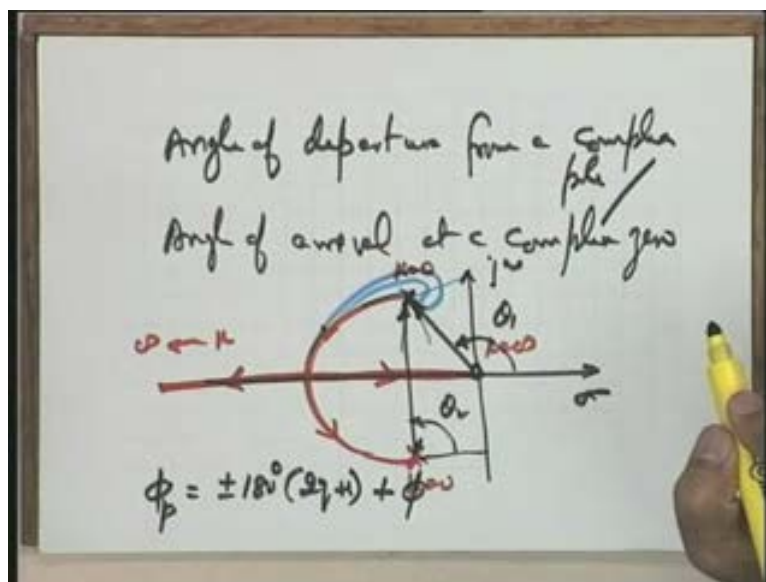 Angle of departure from a complex
pole
Angle of arrival at a complex zero
K=0
jω
θ1
∞ ← K
K=∞
σ
θ2
K=0
ϕp = ±180°(2q+1) + ϕ